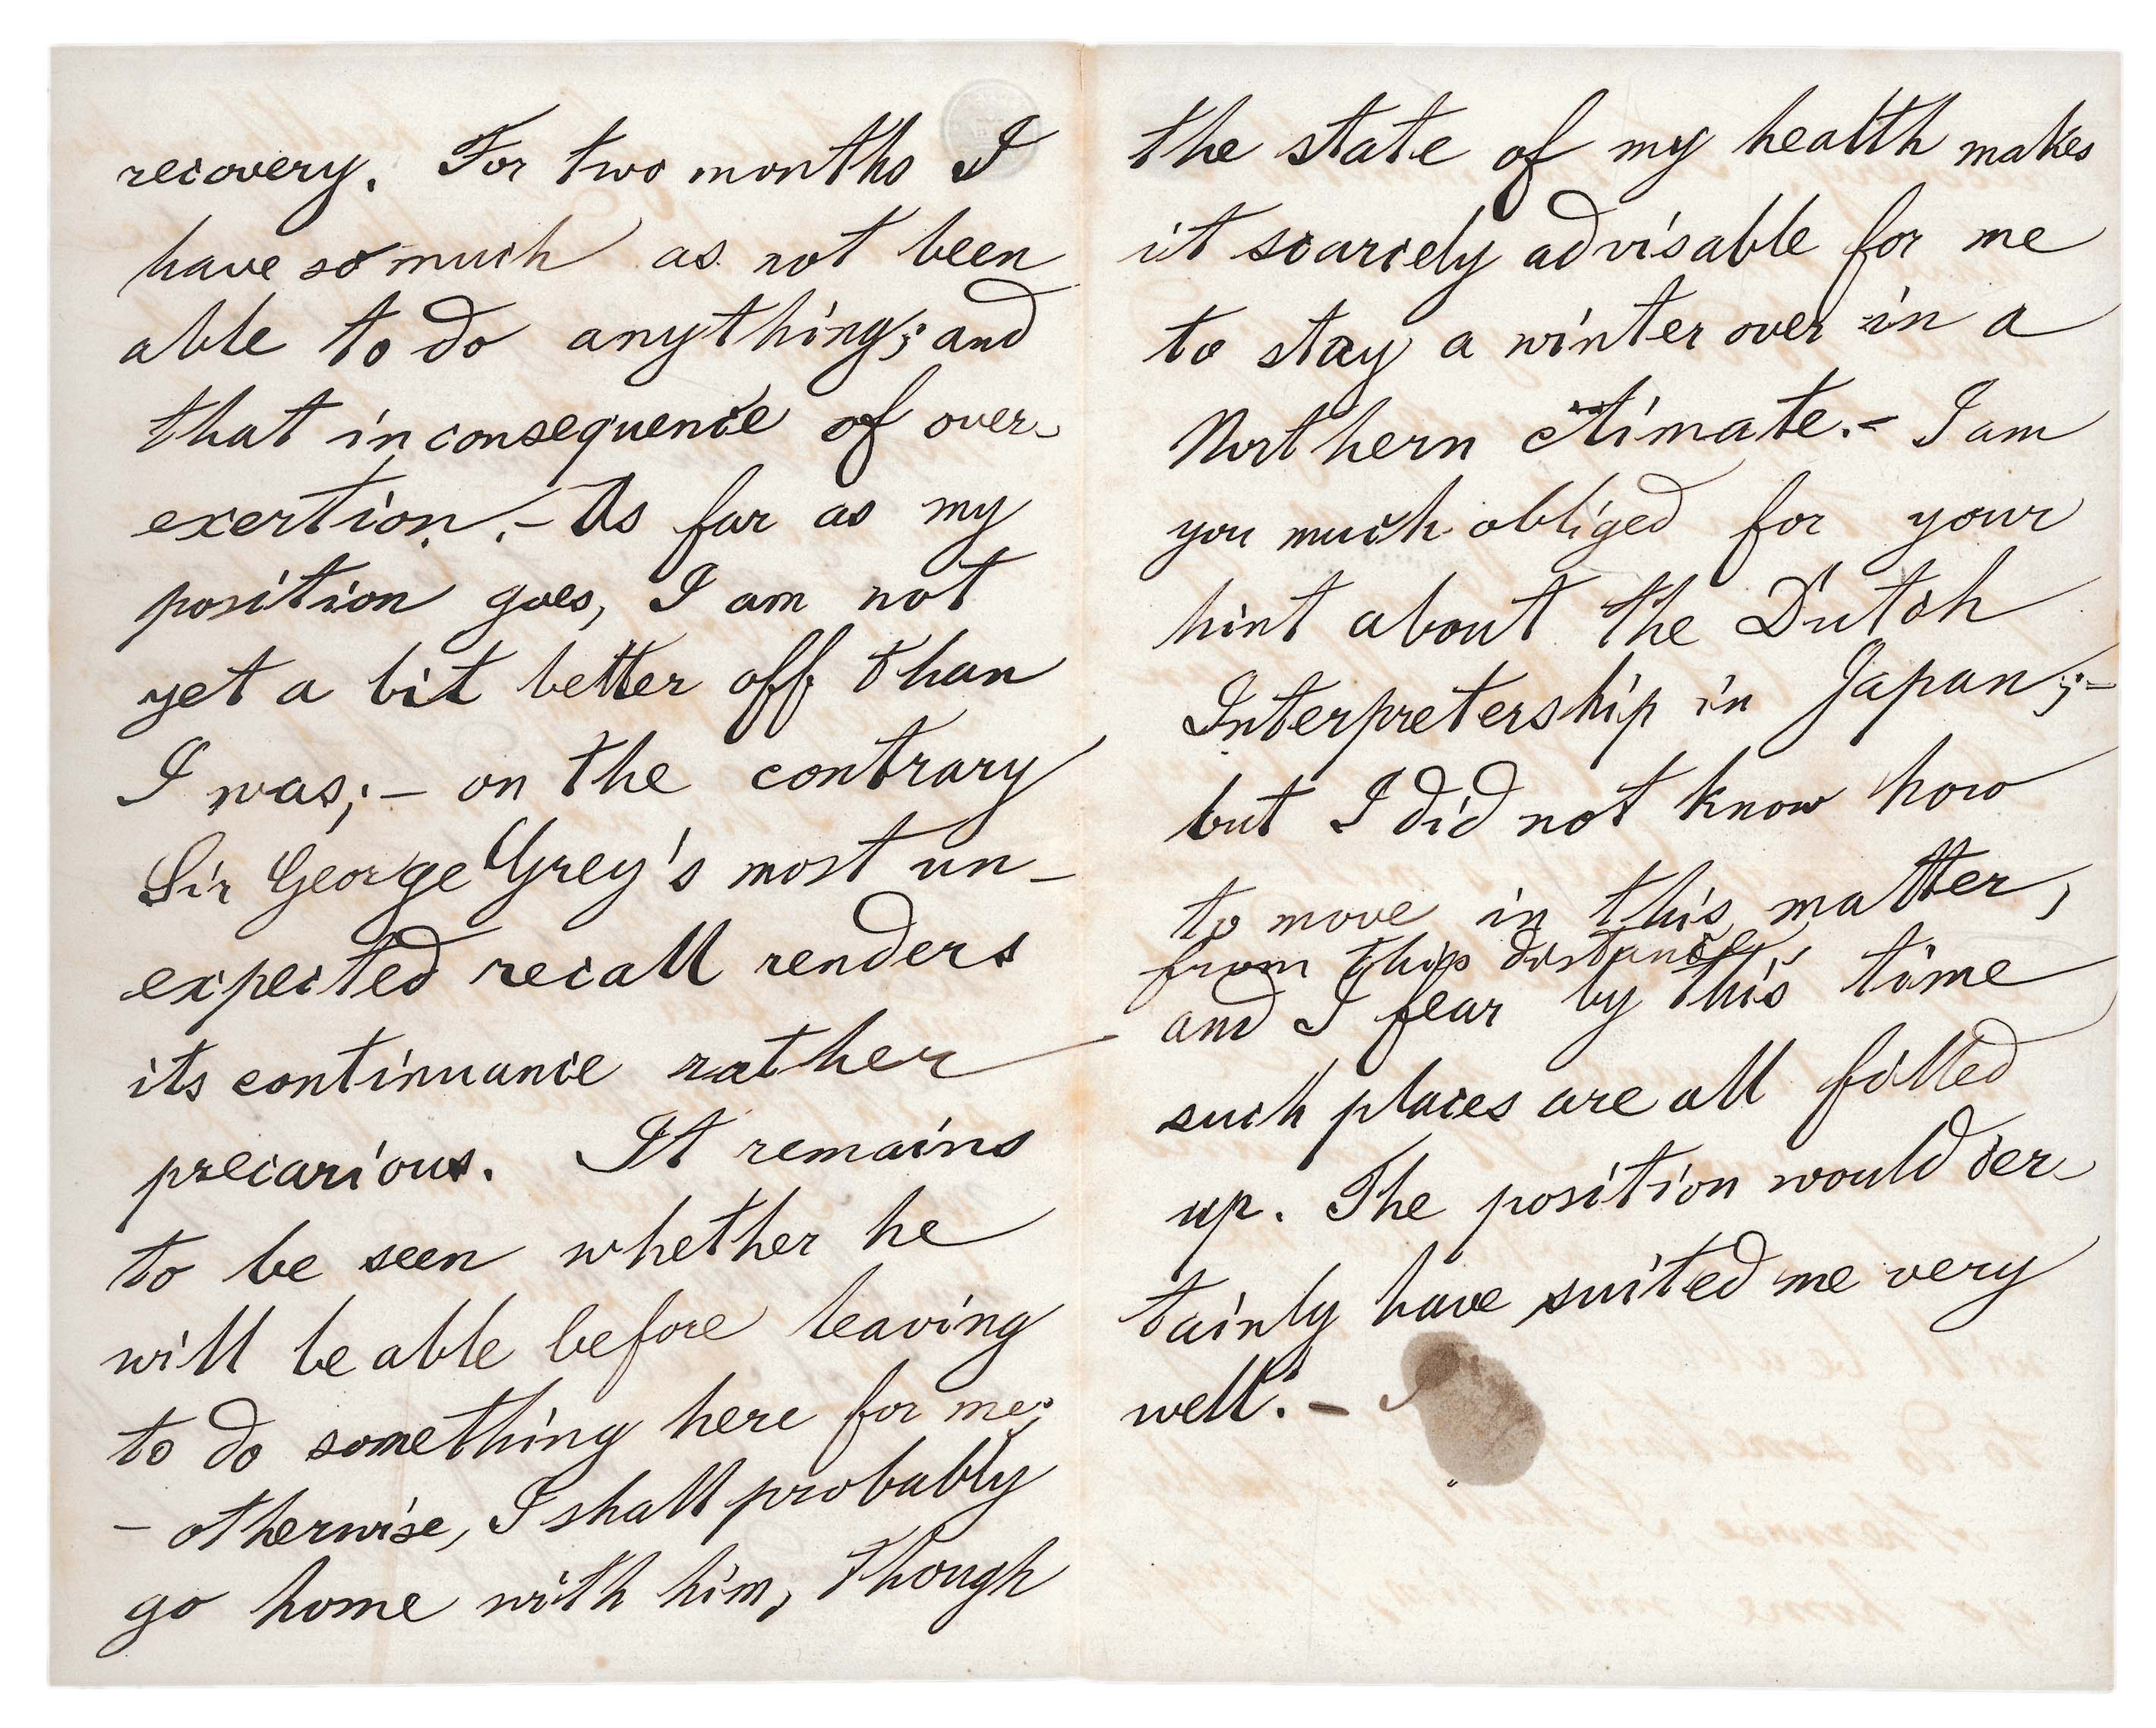 recovery. For two months I
have so much as not been
able to do anything; and
that in consequence of over-
exertion. - As far as my
position goes, I am not
yet a bit better off than
I was; - on the contrary
Sir George Grey's most un-
expected recall renders
its continuance rather
precarious. It remains
to be seen whether he
will be able before leaving
to do something here for me;
- otherwise, I shall probably
go home with him, though
the state of my health makes
it scarcely advisable for me
to stay a winter over in a
Northern climate. - I am
you much obliged for your
hint about the Dutch
Interpretership in Japan; -
but I did not know how
to move in this matter,
from this distance,
and I fear by this time
such places are all filled
up. The position would cer-
tainly have suited me very
well. -